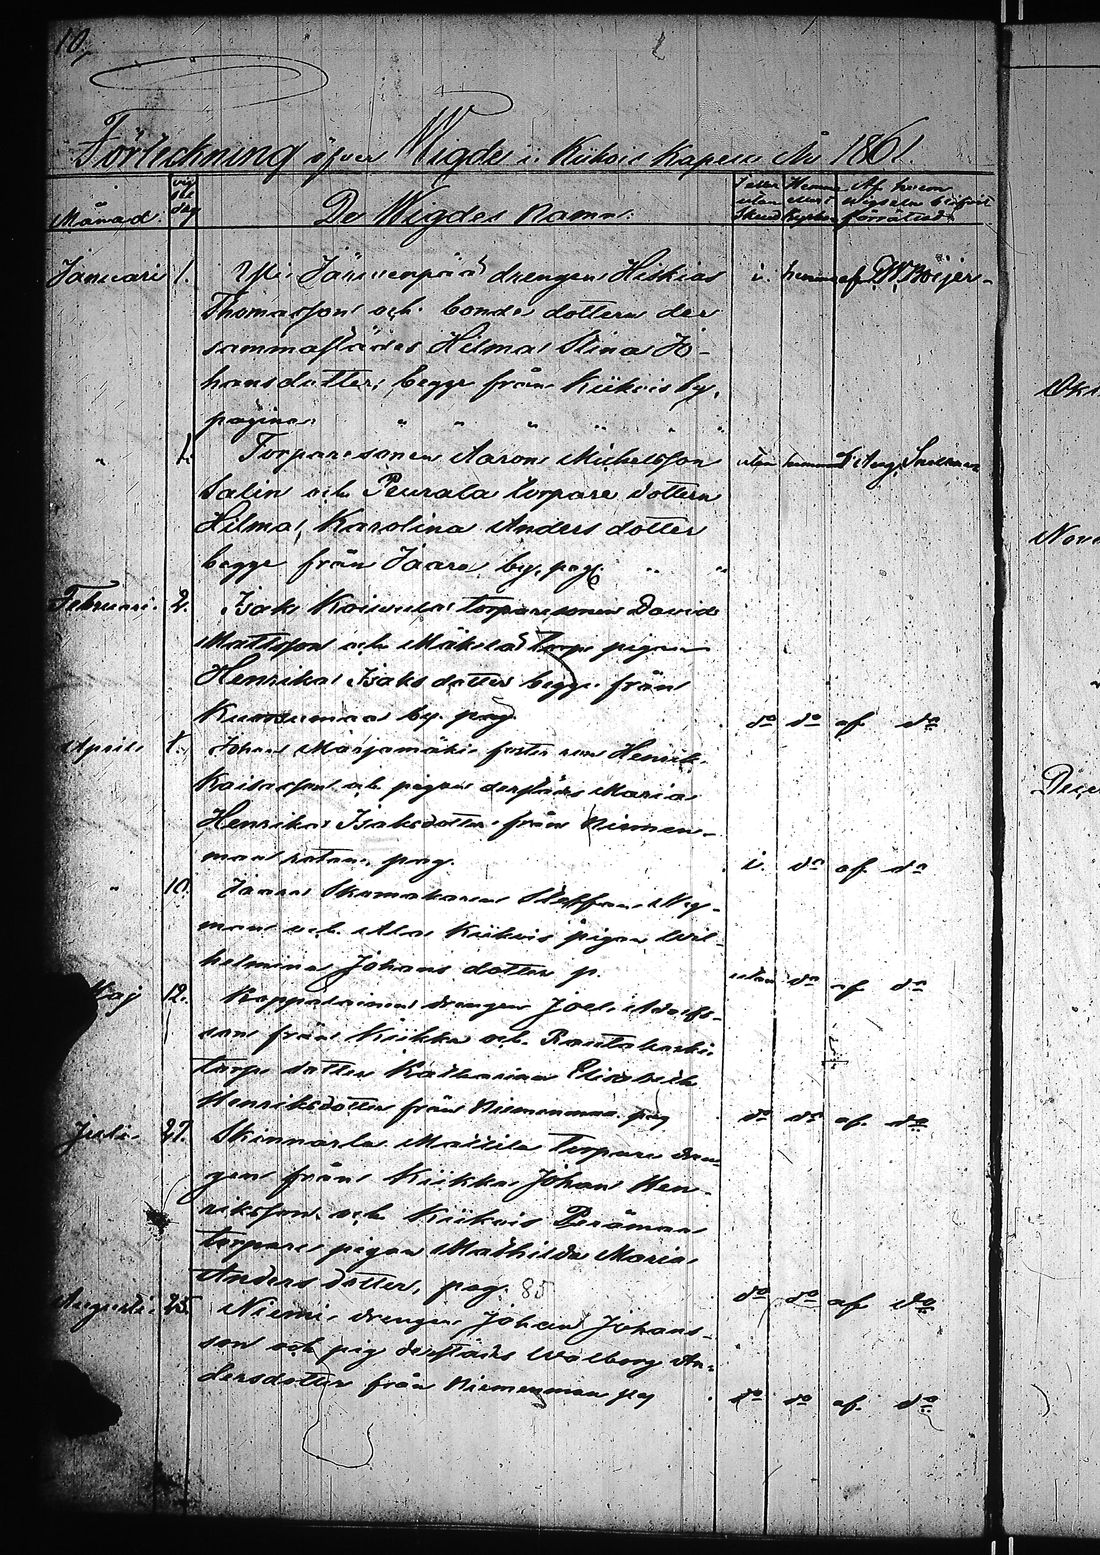 10.
Förteckning öfver Wigde i Kiikois Kapell År 1861.
Månad. De Wigdes Namn. utan Skrud Af hvem Wigseln blifvit förrättad
Januari 1. Yli Järvenpää drengen Hiskias i hemma af Boijer
Thomasson och bonde dottern der
sammastädes Hilma Stina Jo-
hansdotter, begge från Kiikois by,
pagina " " " " " "
" Torparesonen Aaron Michelsson utan hemma
Salin och Peurala torpare dottern
Hilma Karolina Anders dotter
begge från Jaara by, pag. " "
Februari 2. Isaks Koivula torparesonen David
Mattsson och Mäkelä torp. pigan
Henrika Isaks dotter begge från
by. pag. do do af do
April Johan Marjamäki foster son Henrik
och pigan derstädes Maria
Henrika Isaksdotter från Niemen-
maa pag. i. do af do
" 10. Jaara Skomakaren Staffan Ny-
man och Kiikois pigan Wil-
helmina Johans dotter p. utan do af do
Maj 12. drengen Joel Adolfs-
son från Kiikka och Rautakoski
torp dotter Katharina Elisabeth
Henriksdotter från Niemenmaa pag do do af do
Juli 27. Skinnarla Mattila torpare dren-
gen från Kiikka Johan Hen-
riksson och Kiikois Perämaa
torpare pigan Mathilda Maria
Anders dotter, pag. 85 do do af do
Augusti 25. Niemi drengen Johan Johans-
son och pig derstädes Walborg An-
dersdotter från Niemenmaa pag do do af do
Dece